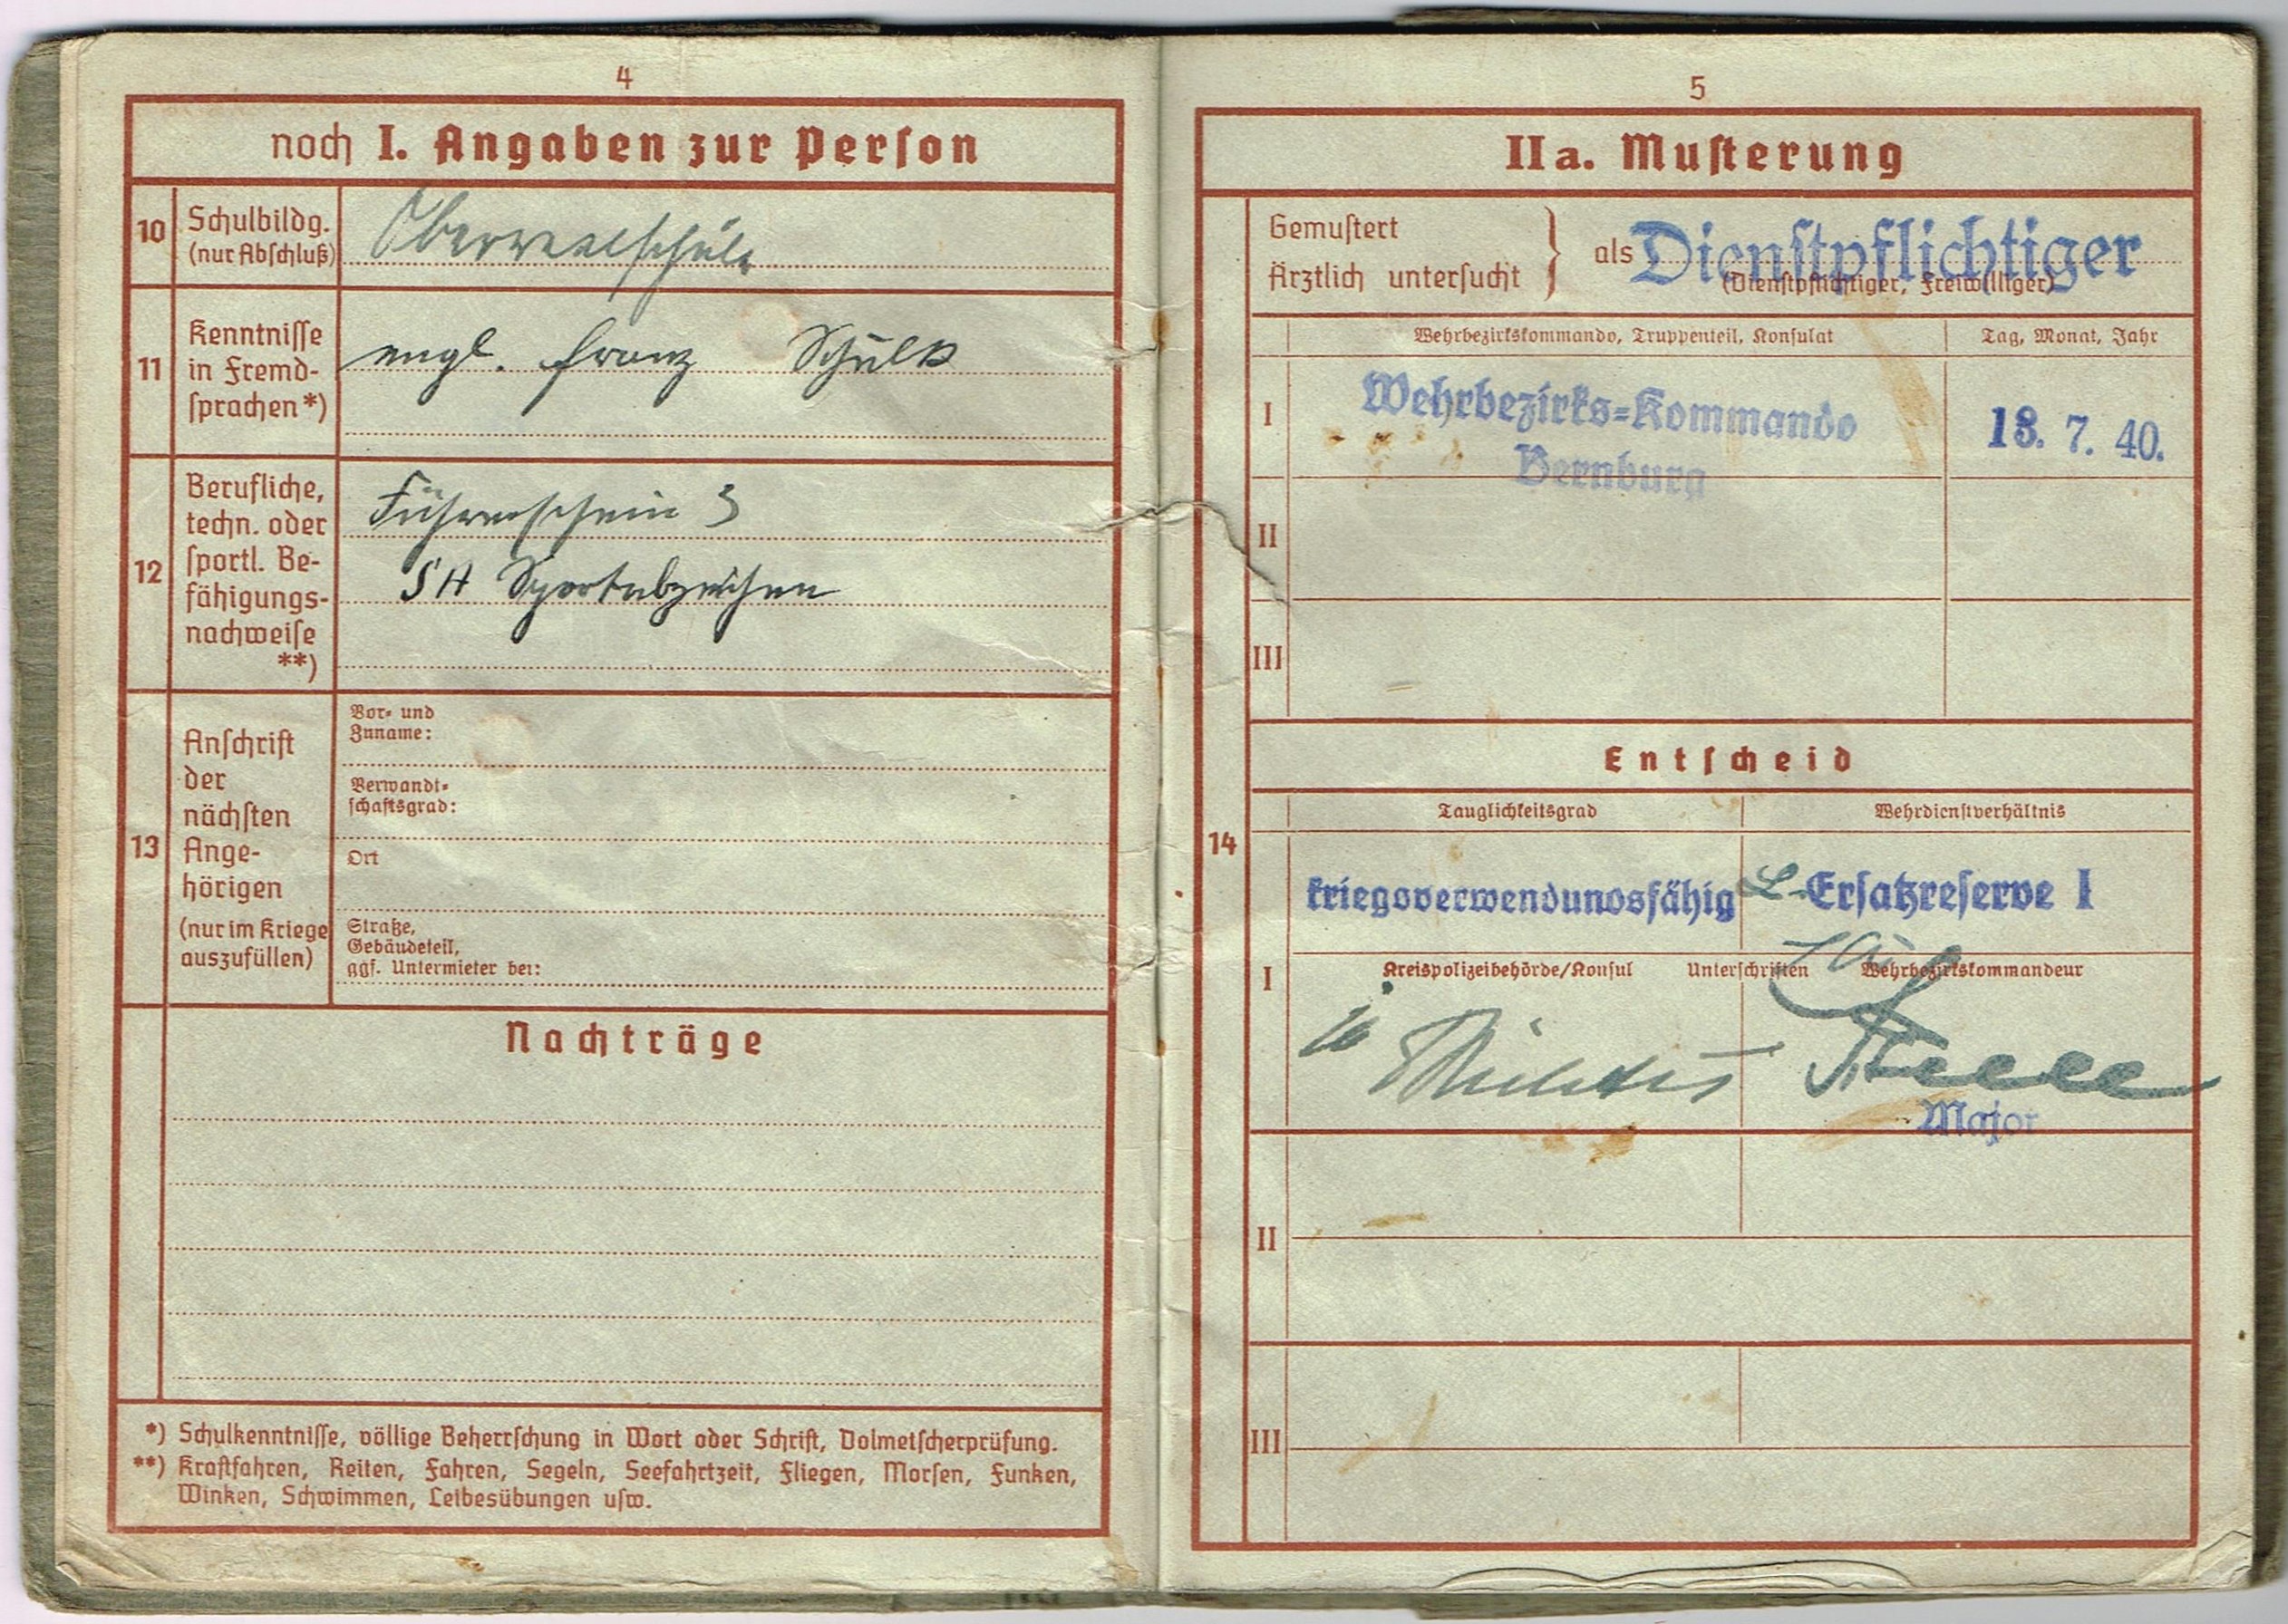 4
noch I. Angaben zur Person
10
Schulbildg.
(nur Abschluß)
Oberrealschule
11
Kenntnisse
in Fremd-
sprachen *)
engl. franz Schulk
12
Berufliche,
techn. oder
sportl. Be-
fähigungs-
nachweise
**)
Führerschein 3
SA Sportabzeichen
13
Anschrift
der
nächsten
Ange-
hörigen
(nur im Kriege
auszufüllen)
Vor- und
Zuname:
Verwandt-
schaftsgrad:
Ort
Straße,
Gebäudeteil,
ggf. Untermieter bei:
Nachträge
*) Schulkenntnisse, völlige Beherrschung in Wort oder Schrift, Dolmetscherprüfung.
**) Kraftfahren, Reiten, Fahren, Segeln, Seefahrtzeit, Fliegen, Morsen, Funken,
Winken, Schwimmen, Leibesübungen usw.
5
IIa. Musterung
Gemustert
Ärztlich untersucht } als Dienstpflichtiger
(Dienstpflichtiger, Freiwilliger)
Wehrbezirkskommando, Truppenteil, Konsulat
Tag, Monat, Jahr
I
Wehrbezirks-Kommando
Bernburg
13. 7. 40.
II
III
Entscheid
14
Tauglichkeitsgrad
Wehrdienstverhältnis
kriegsverwendungsfähig
Ersatzreserve I
I
Kreispolizeibehörde/Konsul Unterschriften Wehrbezirkskommandeur
Major
II
III